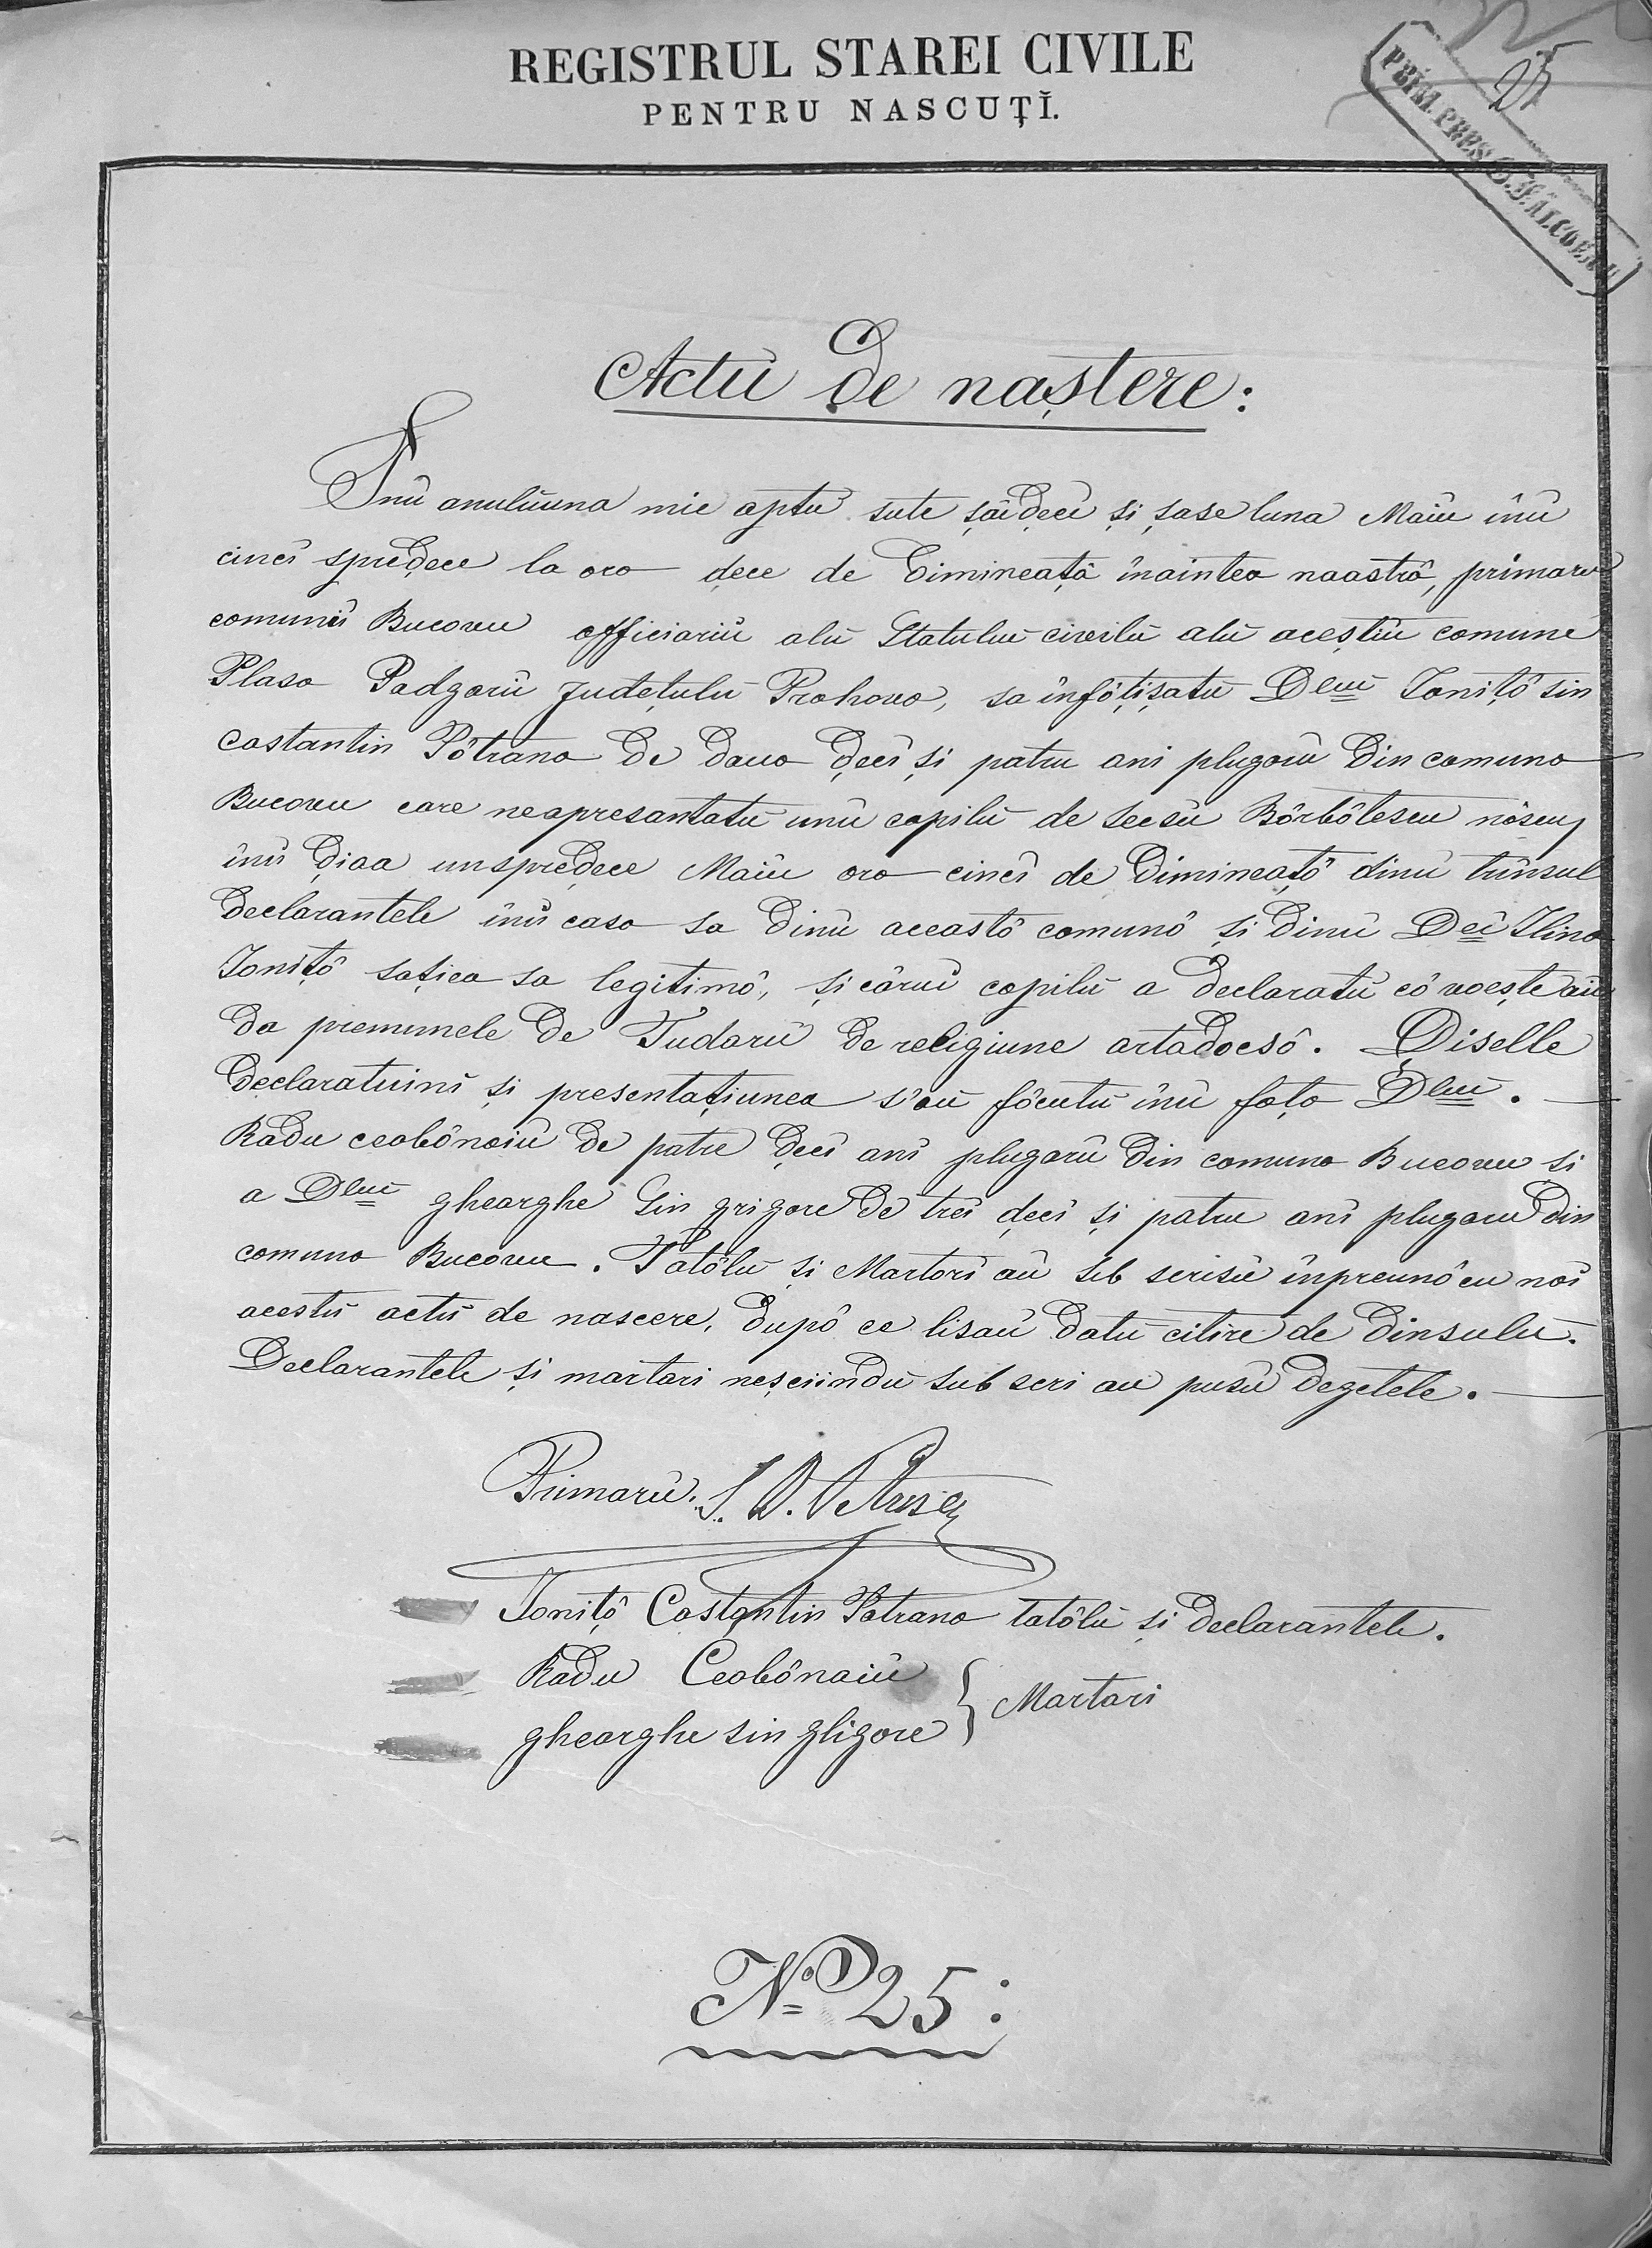 REGISTRUL STAREI CIVILE
PENTRU NASCUȚĬ.
25
PRIM. PRES. G. FĂLCOIANU
Actŭ de naștere:
Inŭ anulŭ una mie optŭ sute șaĭdecĭ și șase luna Maiŭ înŭ
cincĭ spredece la ora dece de dimineață înaintea noastră, primaru
comuniĭ Bucovu officiariŭ alŭ Statuluĭ civilŭ alŭ aceștiĭ comune
Plasa Podgoriĭ județulŭ Prahova, sa înfățișatŭ Dluĭ Ioniță sin
Costantin Pătrana de doua decĭ și patru ani plugarŭ din comuna
Bucovu care neapresantatŭ unŭ copilŭ de secsŭ Bărbătescu născuŧ
înŭ dioa unspredece Maiŭ ora cincĭ de dimineață dinŭ
Declarantele înŭ casa sa dinŭ această comună și dinŭ Deĭ Ilina
Ioniță soția sa legitimă, și căruĭ copilŭ a declaratŭ că voește aĭ
da prenumele de Tudorŭ de religiune ortodocsă. Diselle
declaratiunĭ și presentațiunea s'aŭ făcutŭ înŭ fața Dluĭ.
Radu Ceobănoiŭ de patru decĭ anĭ plugarŭ din comuna Bucovu și
a Dluĭ gheorghe sin grigore de treĭ decĭ și patru anĭ plugaru din
comuna Bucovu. Tatălŭ și Martorĭ aŭ sub scrisŭ înpreună cu noĭ
acestŭ actŭ de nascere, după ce lisaŭ datŭ citire de dinsulŭ.
Declarantele și martori neșciindŭ sub scri au pusŭ degetele.
Primarŭ.
Ioniță Costantin Patrana tatălŭ și declarantele.
Radu Ceobănoiŭ
gheorghe sin gligore } Martori
No 25: